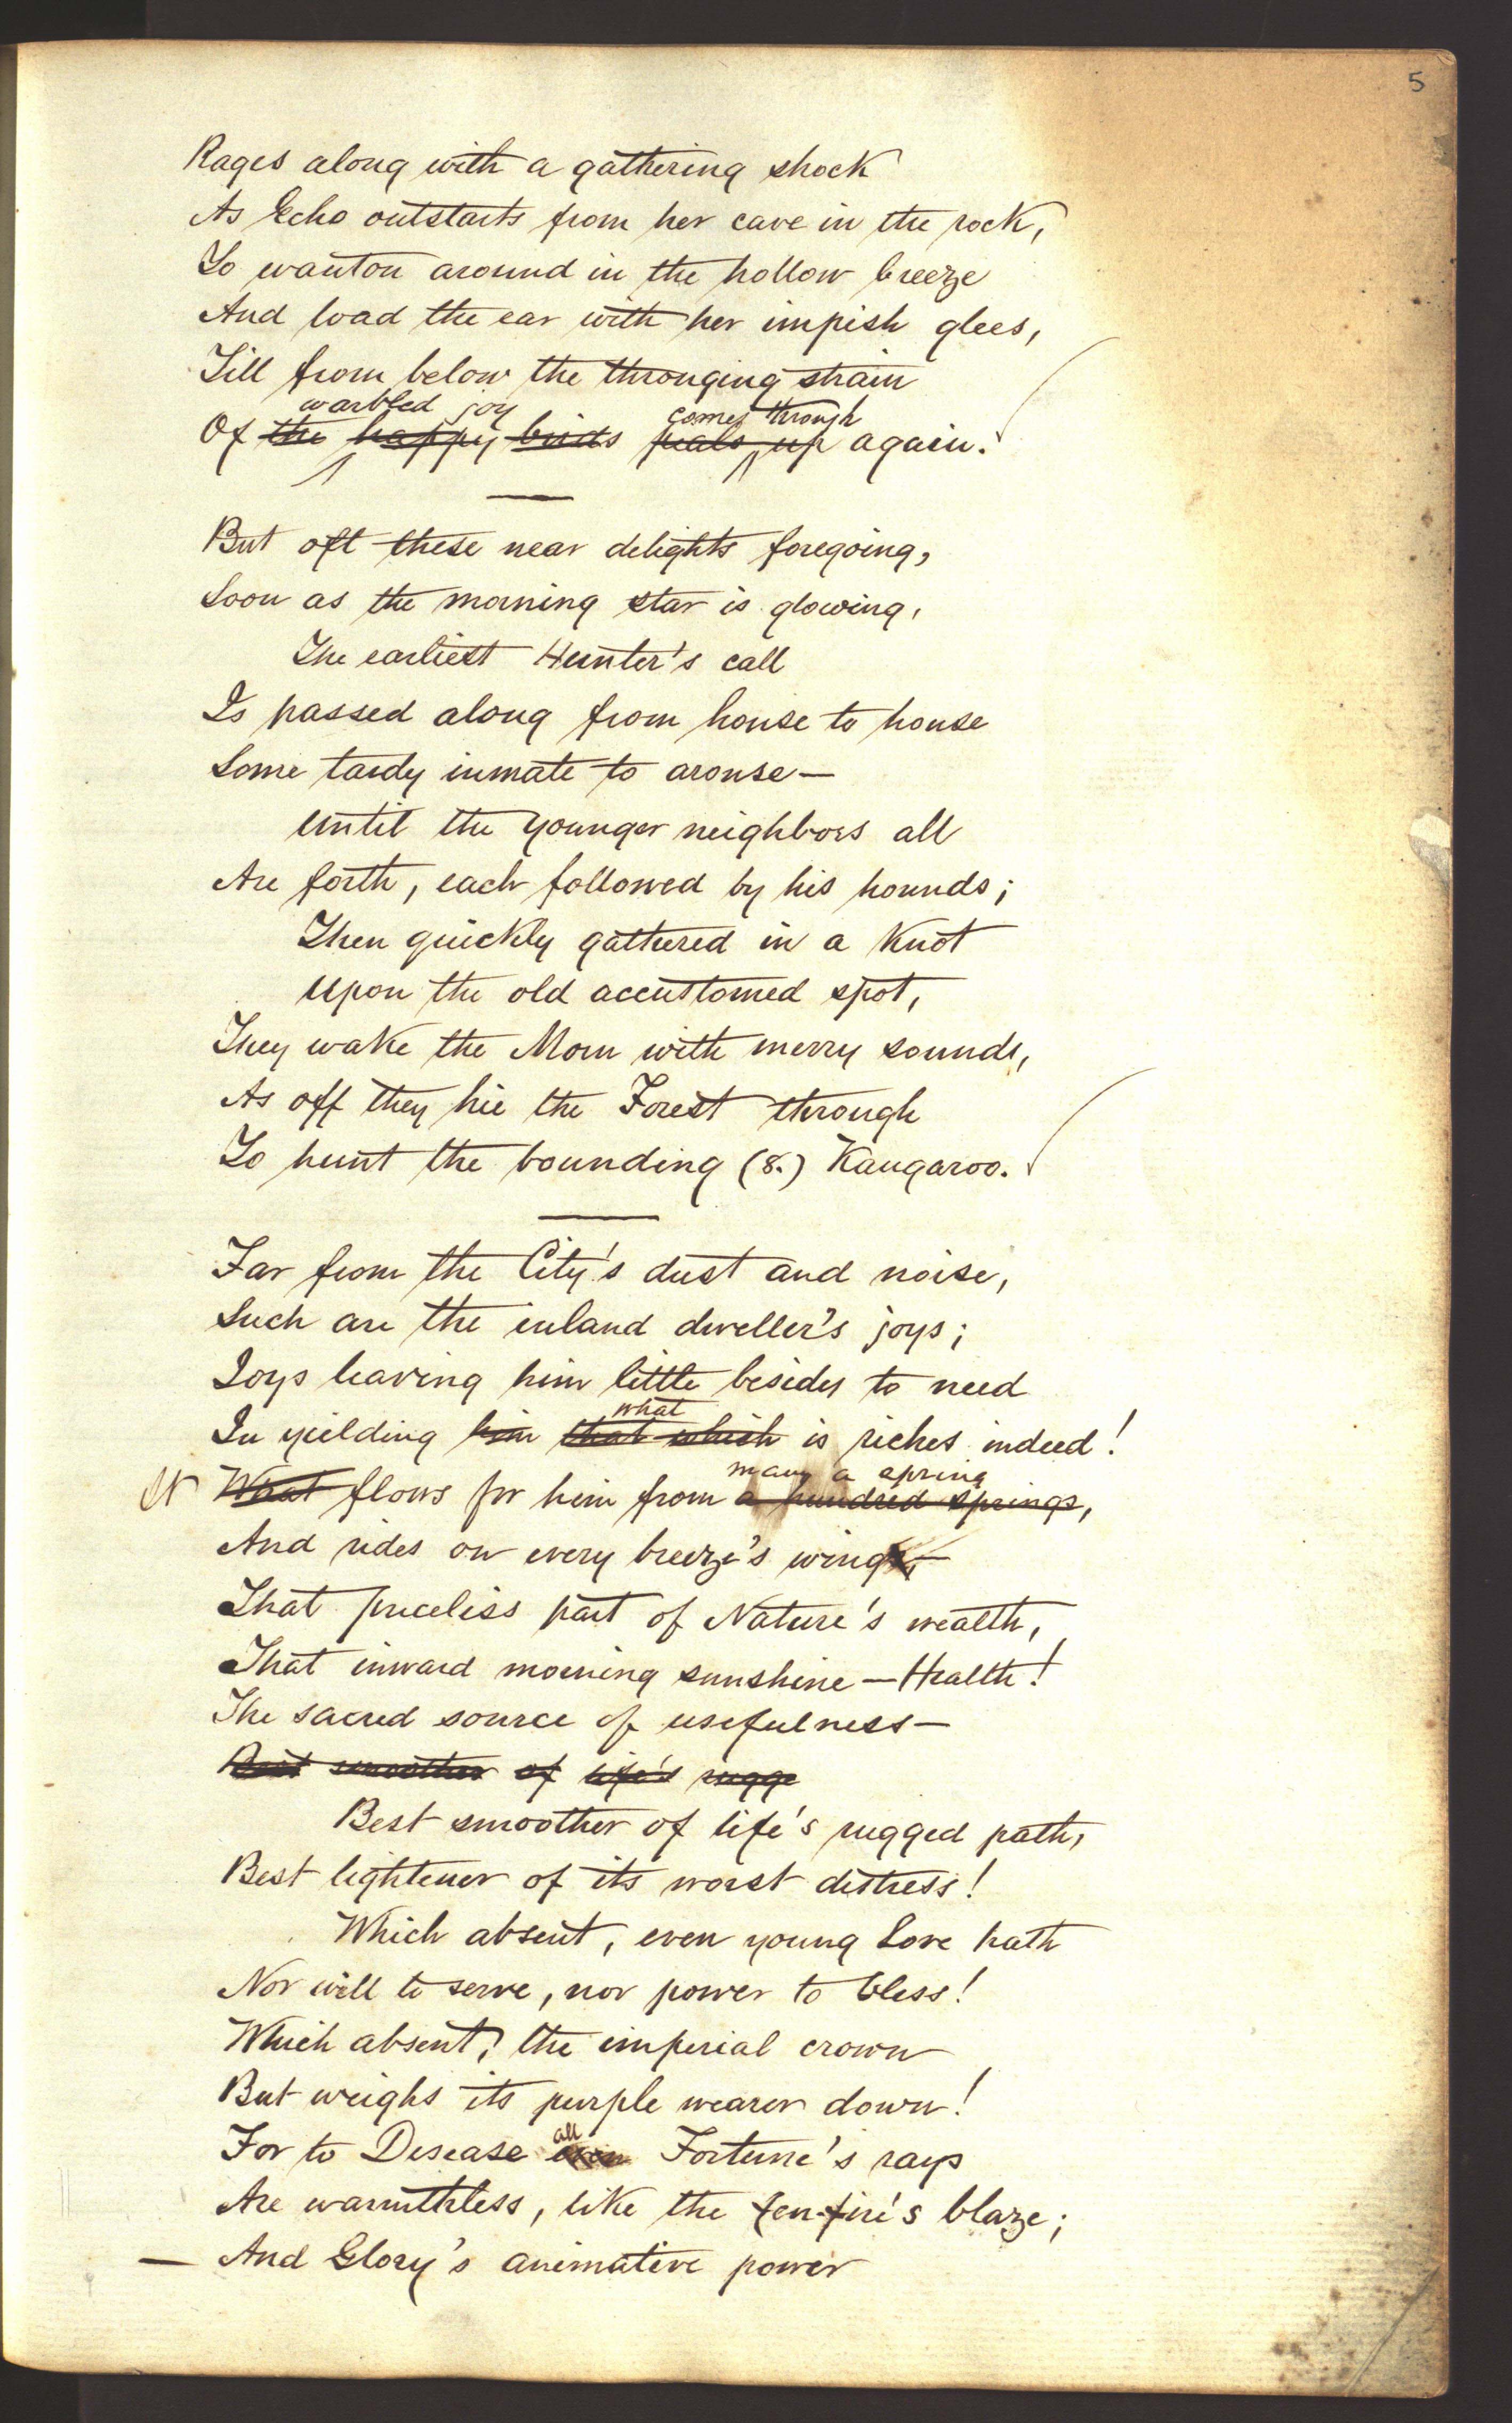 5
Rages along with a gathering shock
As Echo outstarts from her cave in the rock,
To wanton around in the hollow breeze
And load the ear with her impish glees,
Till from below the thronging strain
warbled joy comes through
Of the happy birds peals up again.
But oft these near delights foregoing,
Soon as the morning star is glowing,
The earliest Hunter's call
Is passed along from house to house
Some tardy inmate to arouse—
Until the younger neighbors all
Are forth, each followed by his hounds;
Then quickly gathered in a knot
Upon the old accustomed spot,
They wake the Morn with merry sounds,
As off they hie the Forest through
To hunt the bounding (8.) Kangaroo.
Far from the City's dust and noise,
Such are the inland dweller's joys;
Joys leaving him little besides to need
what
In yielding him that which is riches indeed!
many a spring
It What flows for him from a hundred springs,
And rides on every breeze's wing,—
That priceless part of Nature's wealth,
That inward morning sunshine—Health!
The sacred source of usefulness—
Best smoother of life's rugge
Best smoother of life's rugged path,
Best lightener of its worst distress!
Which absent, even young Love hath
Nor will to serve, nor power to bless!
Which absent, the imperial crown
But weighs its purple wearer down!
all
For to Disease even Fortune's rays
Are warmthless, like the fen-fire's blaze;
— And Glory's animative power